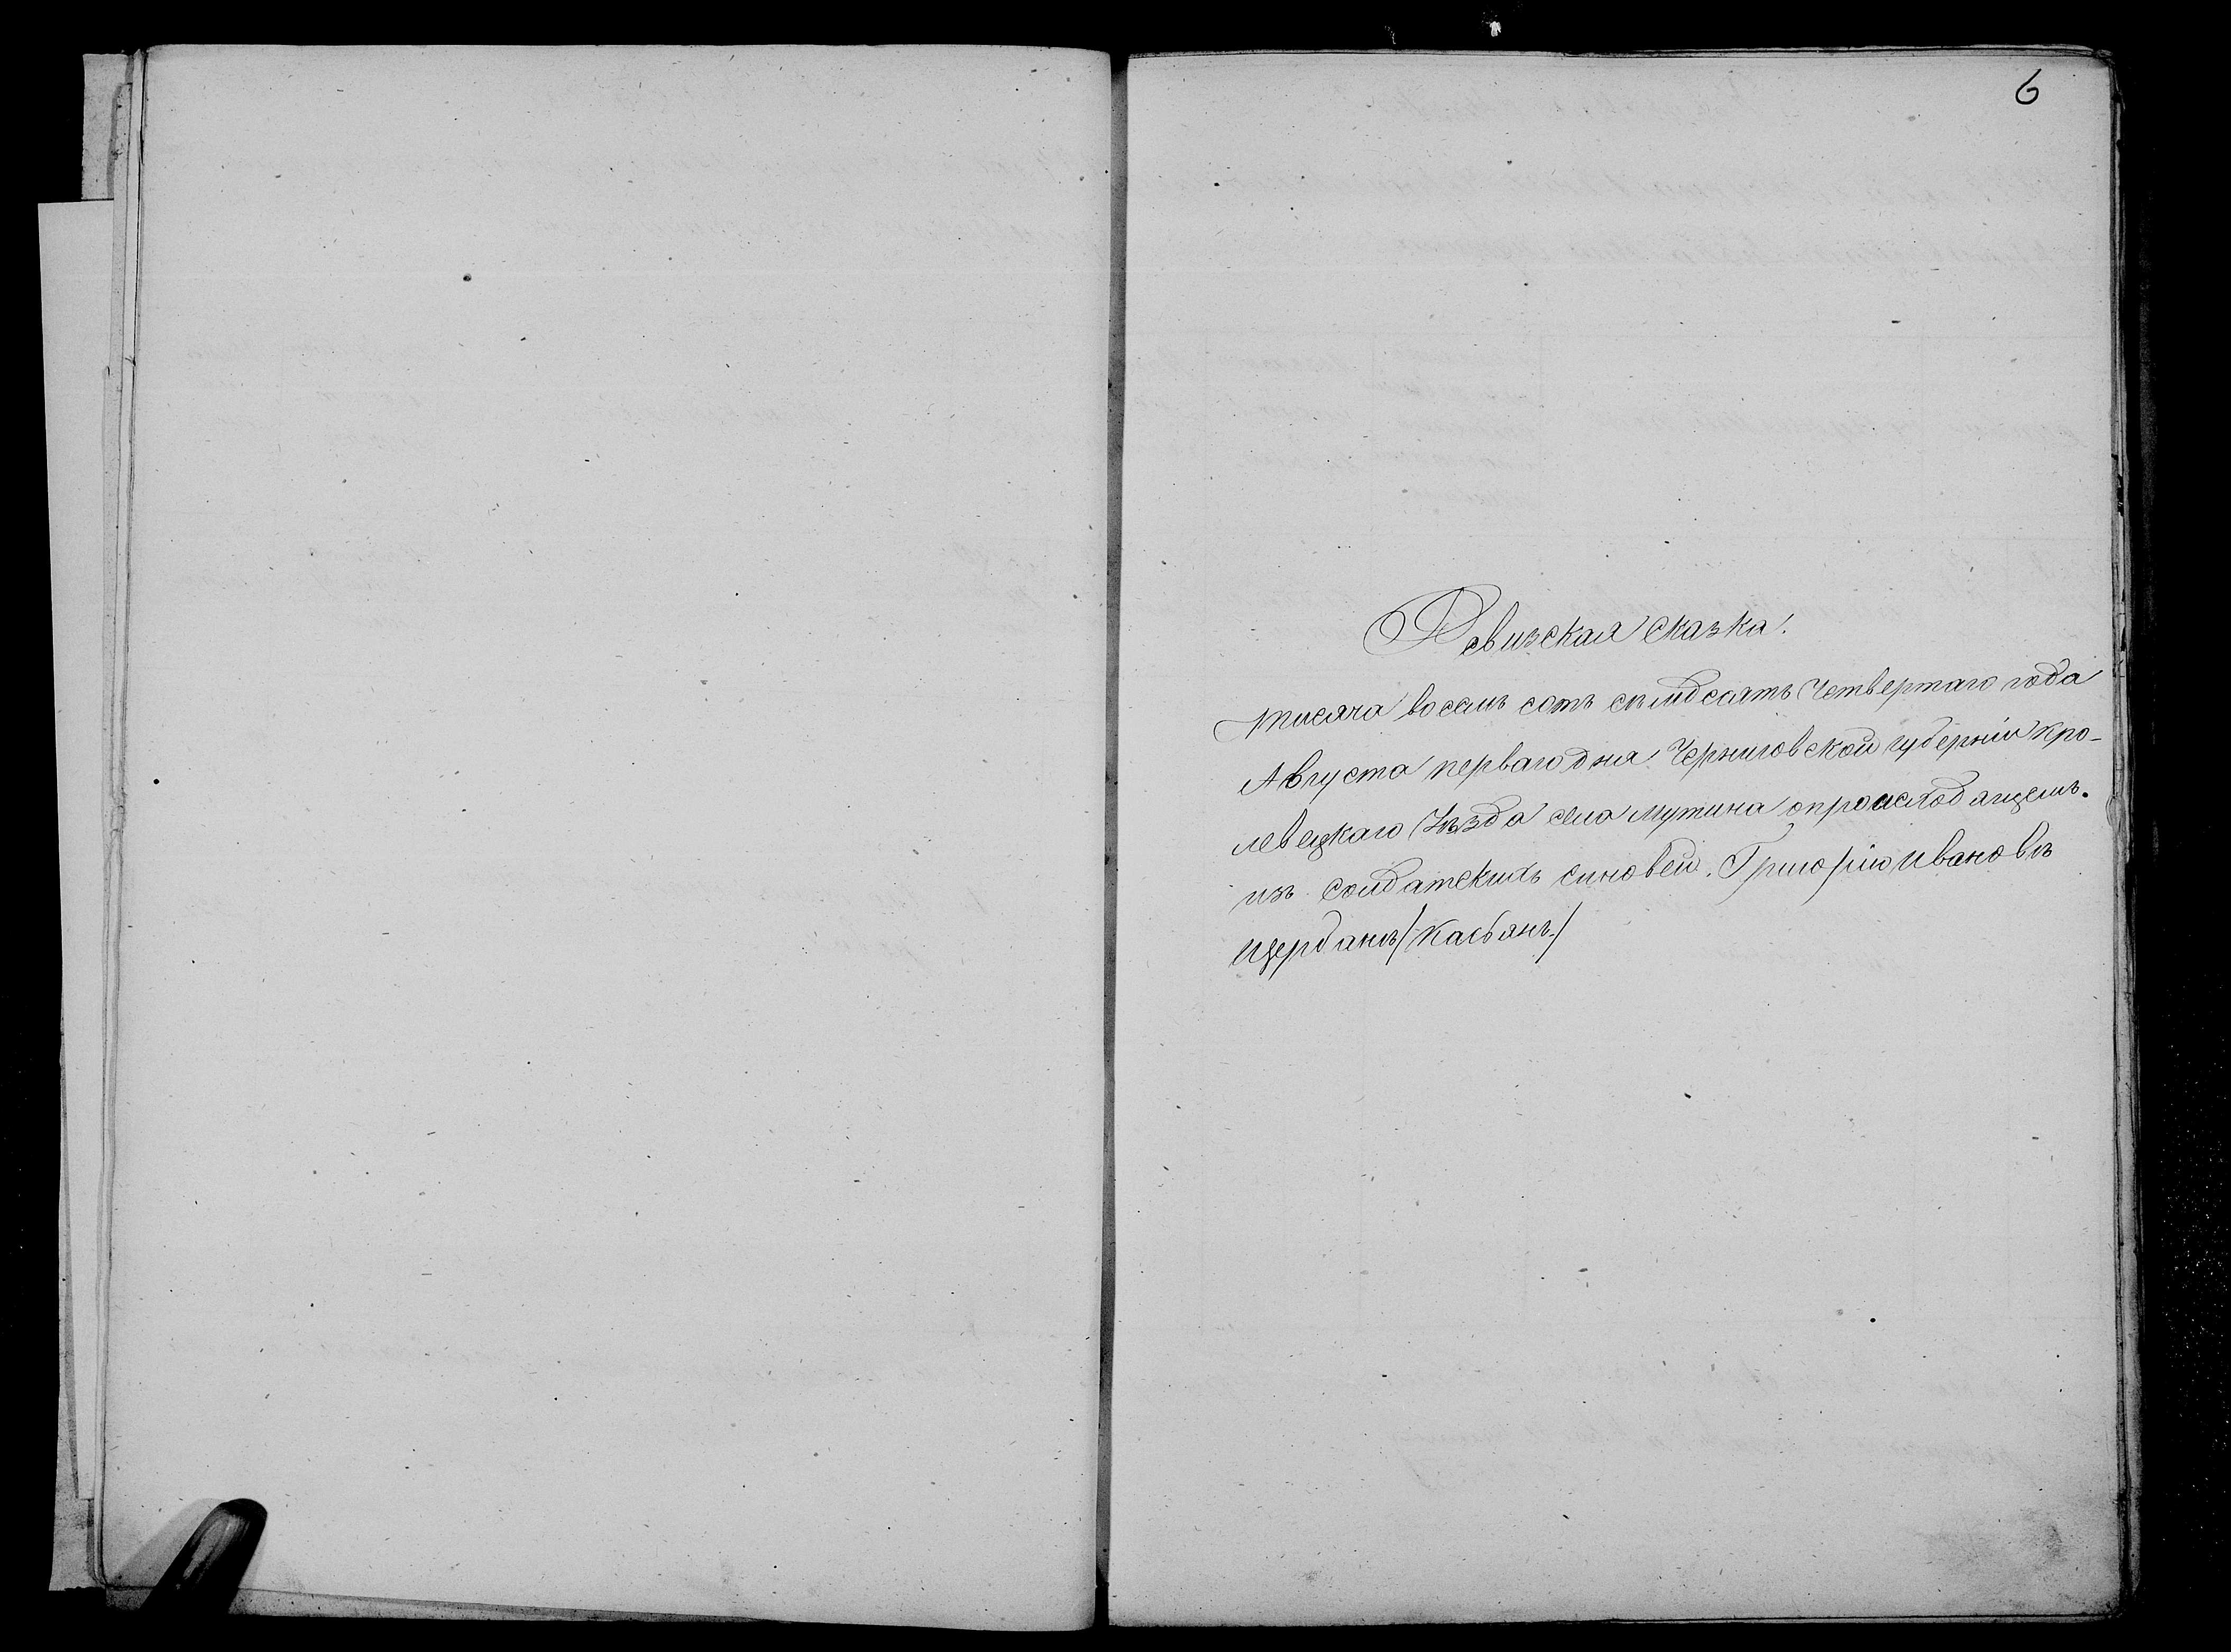 6
Ревизская сказка.
тисяча восемь сотъ семдесятъ Четвертаго года
Августа перваго дня Черниговской губерніи Кро-
левецкаго Уѣзда села Мутина о происходящемъ
изъ солдатскихъ синовей. Григорію Ивановѣ